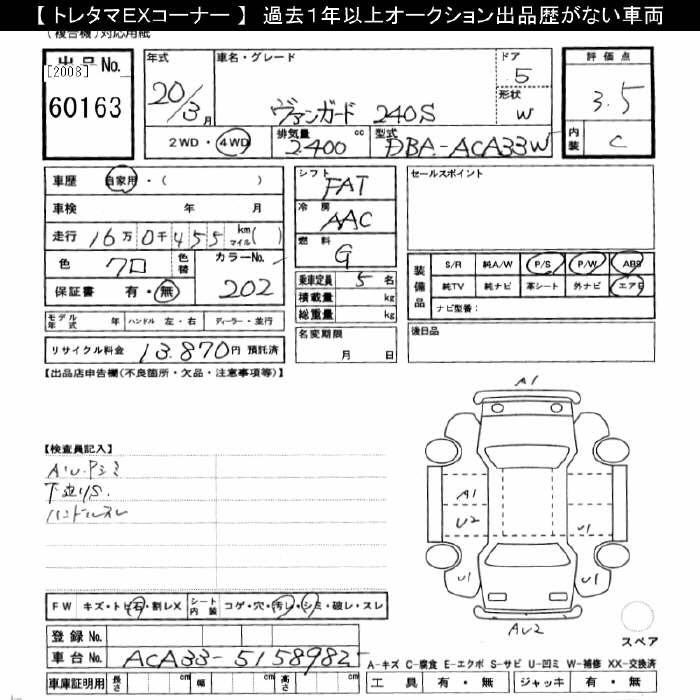 【 トレタマEXコーナー 】 過去１年以上オークション出品歴がない車両
(複合機)対応用紙
出品No.
[2008]
60163
年式
20/3月
車名・グレード
ヴァンガード 240S
ドア
5
形状
W
評価点
3.5
内装
C
2WD・4WD
排気量
2.400 cc
型式
DBA-ACA33W
車歴 自家用・( )
車検 年 月
走行 16万0千455 km マイル( )
色 クロ 色替 カラーNo. 202
保証書 有・無
モデル年式 年 ハンドル 左・右 ディーラー・並行
リサイクル料金 13.870円 預託済
シフト FAT
冷房 AAC
燃料 G
乗車定員 5 名
積載量 kg
総重量 kg
名変期限
月 日
セールスポイント
装備品
S/R 純A/W P/S P/W ABS
純TV 純ナビ 革シート 外ナビ エアB
ナビ型番:
後日品
【出品店申告欄(不良箇所・欠品・注意事項等)】
【検査員記入】
下廻りS.
ハンドルスレ
A1
A1
U2
U1
U1
U1
AU2
スペア
FW キズ・トビ石・割レX シート内装 コゲ・穴・汚レ・シミ・破レ・スレ
登録No.
車台No. ACA33-5158982
車庫証明用 長さ cm 幅 cm 高さ cm
A-キズ C-腐食 E-エクボ S-サビ U-凹ミ W-補修 XX-交換済
工具 有・無 ジャッキ 有・無